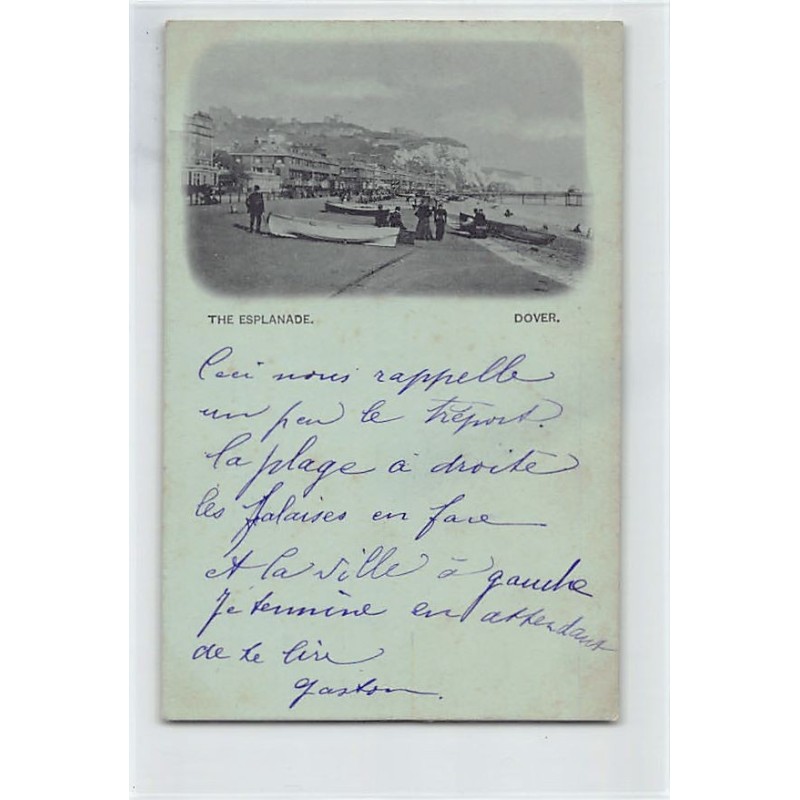 THE ESPLANADE. DOVER.
Ceci nous rappelle
un peu le tréport.
la plage à droite
les falaises en face
et la ville à gauche
Je termine en attendant
de te lire
gaston.